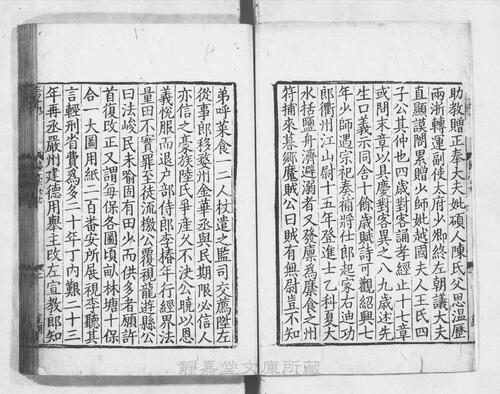 助教贈正奉大夫妣碩人陳氏父思温歷
兩浙轉運副使太府少卿終左朝議大夫
直顯謨閣累贈少師妣越國夫人王氏四
子公其仲也四歲對客誦孝經止十七章
或問末章以具慶對客異之八九歲述先
生口義示同舍十餘歲賦詩可觀紹興七
年少師遇宗祀奏補將仕郎起家右迪功
郎衢州江山尉十五年登進士乙科夏大
水括鹽舟濟避溺者又發廪爲糜食之州
符捕來暮鄉魔賊公曰賊有無尉豈不知
弟呼菜食一二人杖遣之監司交薦陞左
從事郎移婺州金華丞與民期限必信人
亦信之豪族陸氏爭産久不决公曉以恩
義恱服而退户部侍郎李椿年行經界法
量田不實罪至徒流檄公覆視龍游縣公
曰法峻民未喻固有田少而供多者願許
首復改正又謂每保各圖頃畝林塘十保
合一大圖用紙二百番安所展視李聽其
言輕刑省費爲多二十年丁内艱二十三
年再丞嚴州建德用舉主改左宣教郎知
靜嘉堂文庫所蔵